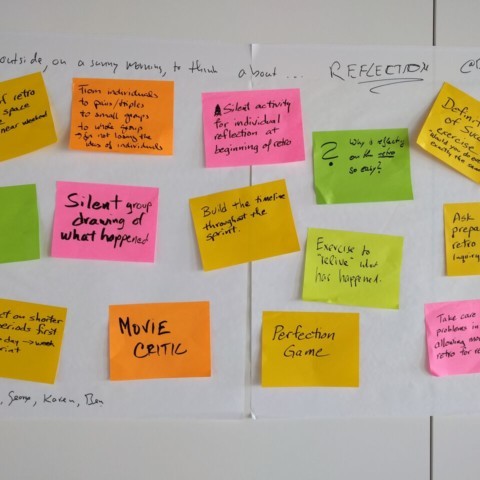 outside, on a sunny morning, to think about ...
REFLECTION
of retro
space
near weekend
From individuals
to pairs/triples
to small groups
to whole group
for not losing the
idea of individuals
Silent activity
for individual
reflection at
beginning of retro
? Why is reflecting
on the retro
so easy?
Definition
of Success
exercise
Silent group
drawing of
what happened
Build the timeline
throughout the
sprint.
Exercise to
"relive" what
has happened.
Ask
prepare
retro
on shorter
periods first
day → week
sprint
MOVIE
CRITIC
Perfection
Game
Take care
problems in
allowing
retro for
George, Karen, Ben